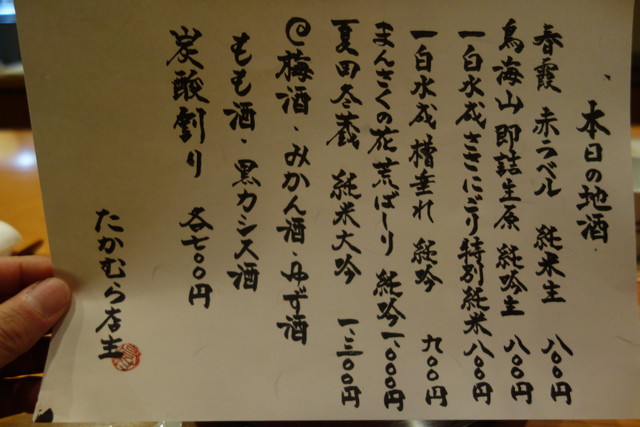 本日の地酒
春霞 赤ラベル 純米生 八〇〇円
鳥海山 即詰生原 純吟生 八〇〇円
一白水成 ささにごり 特別純米 八〇〇円
一白水成 槽垂れ 純吟 九〇〇円
まんさくの花 荒ばしり 純吟 一、〇〇〇円
夏田冬蔵 純米大吟 一、三〇〇円
@梅酒・みかん酒・ゆず酒
もも酒・黒カシス酒
炭酸割り 各七〇〇円
たかむら店主